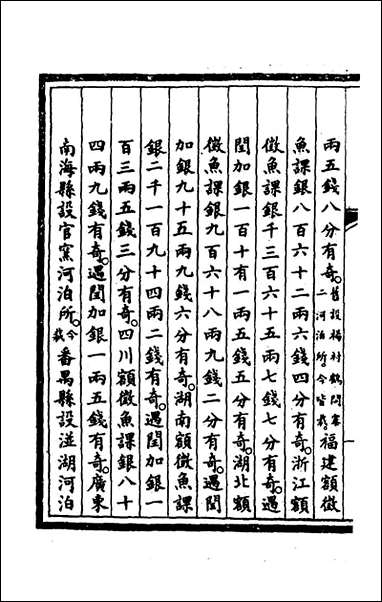 兩五錢八分有奇舊設楊村鶴問等二河泊所今皆裁福建額徵
魚課銀八百六十二兩六錢四分有奇浙江額
徵魚課銀千三百六十五兩七錢七分有奇遇
閏加銀一百十有一兩五錢五分有奇湖北額
徵魚課銀九百六十八兩九錢二分有奇遇閏
加銀九十五兩九錢六分有奇湖南額徵魚課
銀二千一百九十四兩二錢有奇遇閏加銀一
百三兩五錢三分有奇四川額徵魚課銀八十
四兩九錢有奇遇閏加銀一兩五錢有奇廣東
南海縣設官窯河泊所今裁番禺縣設泌湖河泊